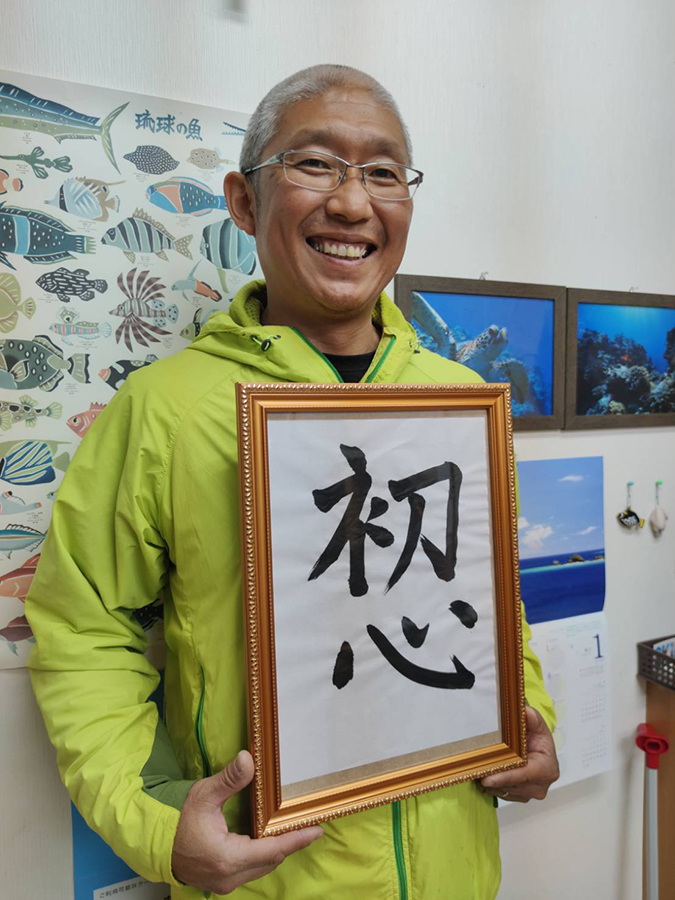 琉球の魚
初
心
1